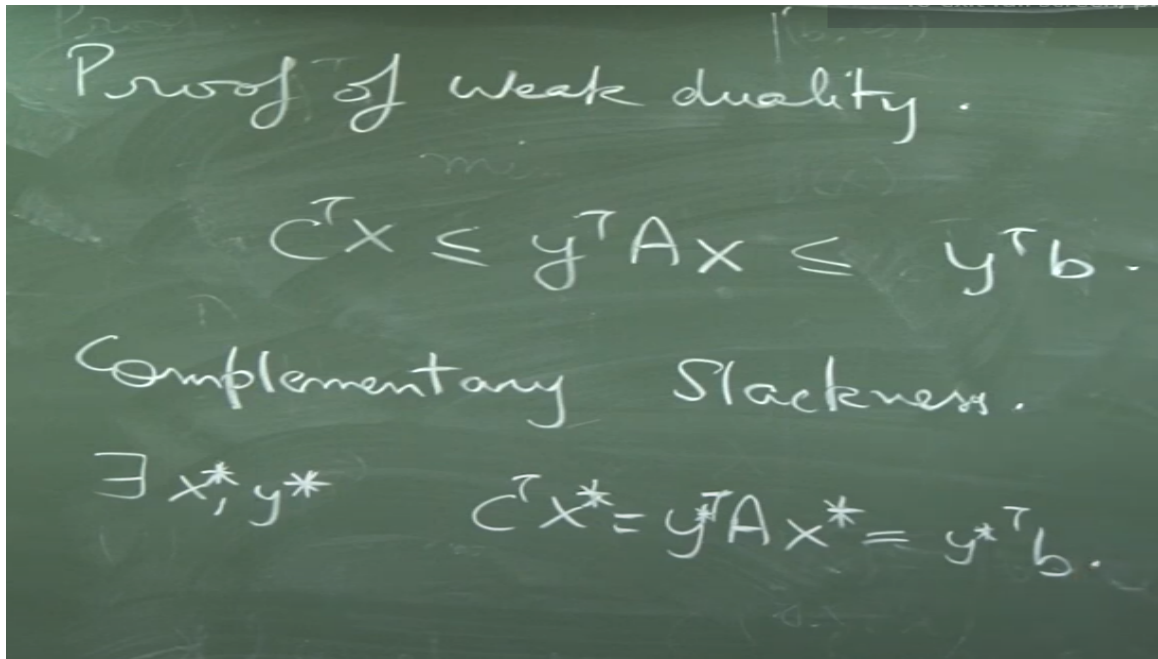 Proof of weak duality.
cᵀx ≤ yᵀAx ≤ yᵀb.
Complementary Slackness.
∃ x*, y* cᵀx* = y*ᵀAx* = y*ᵀb.